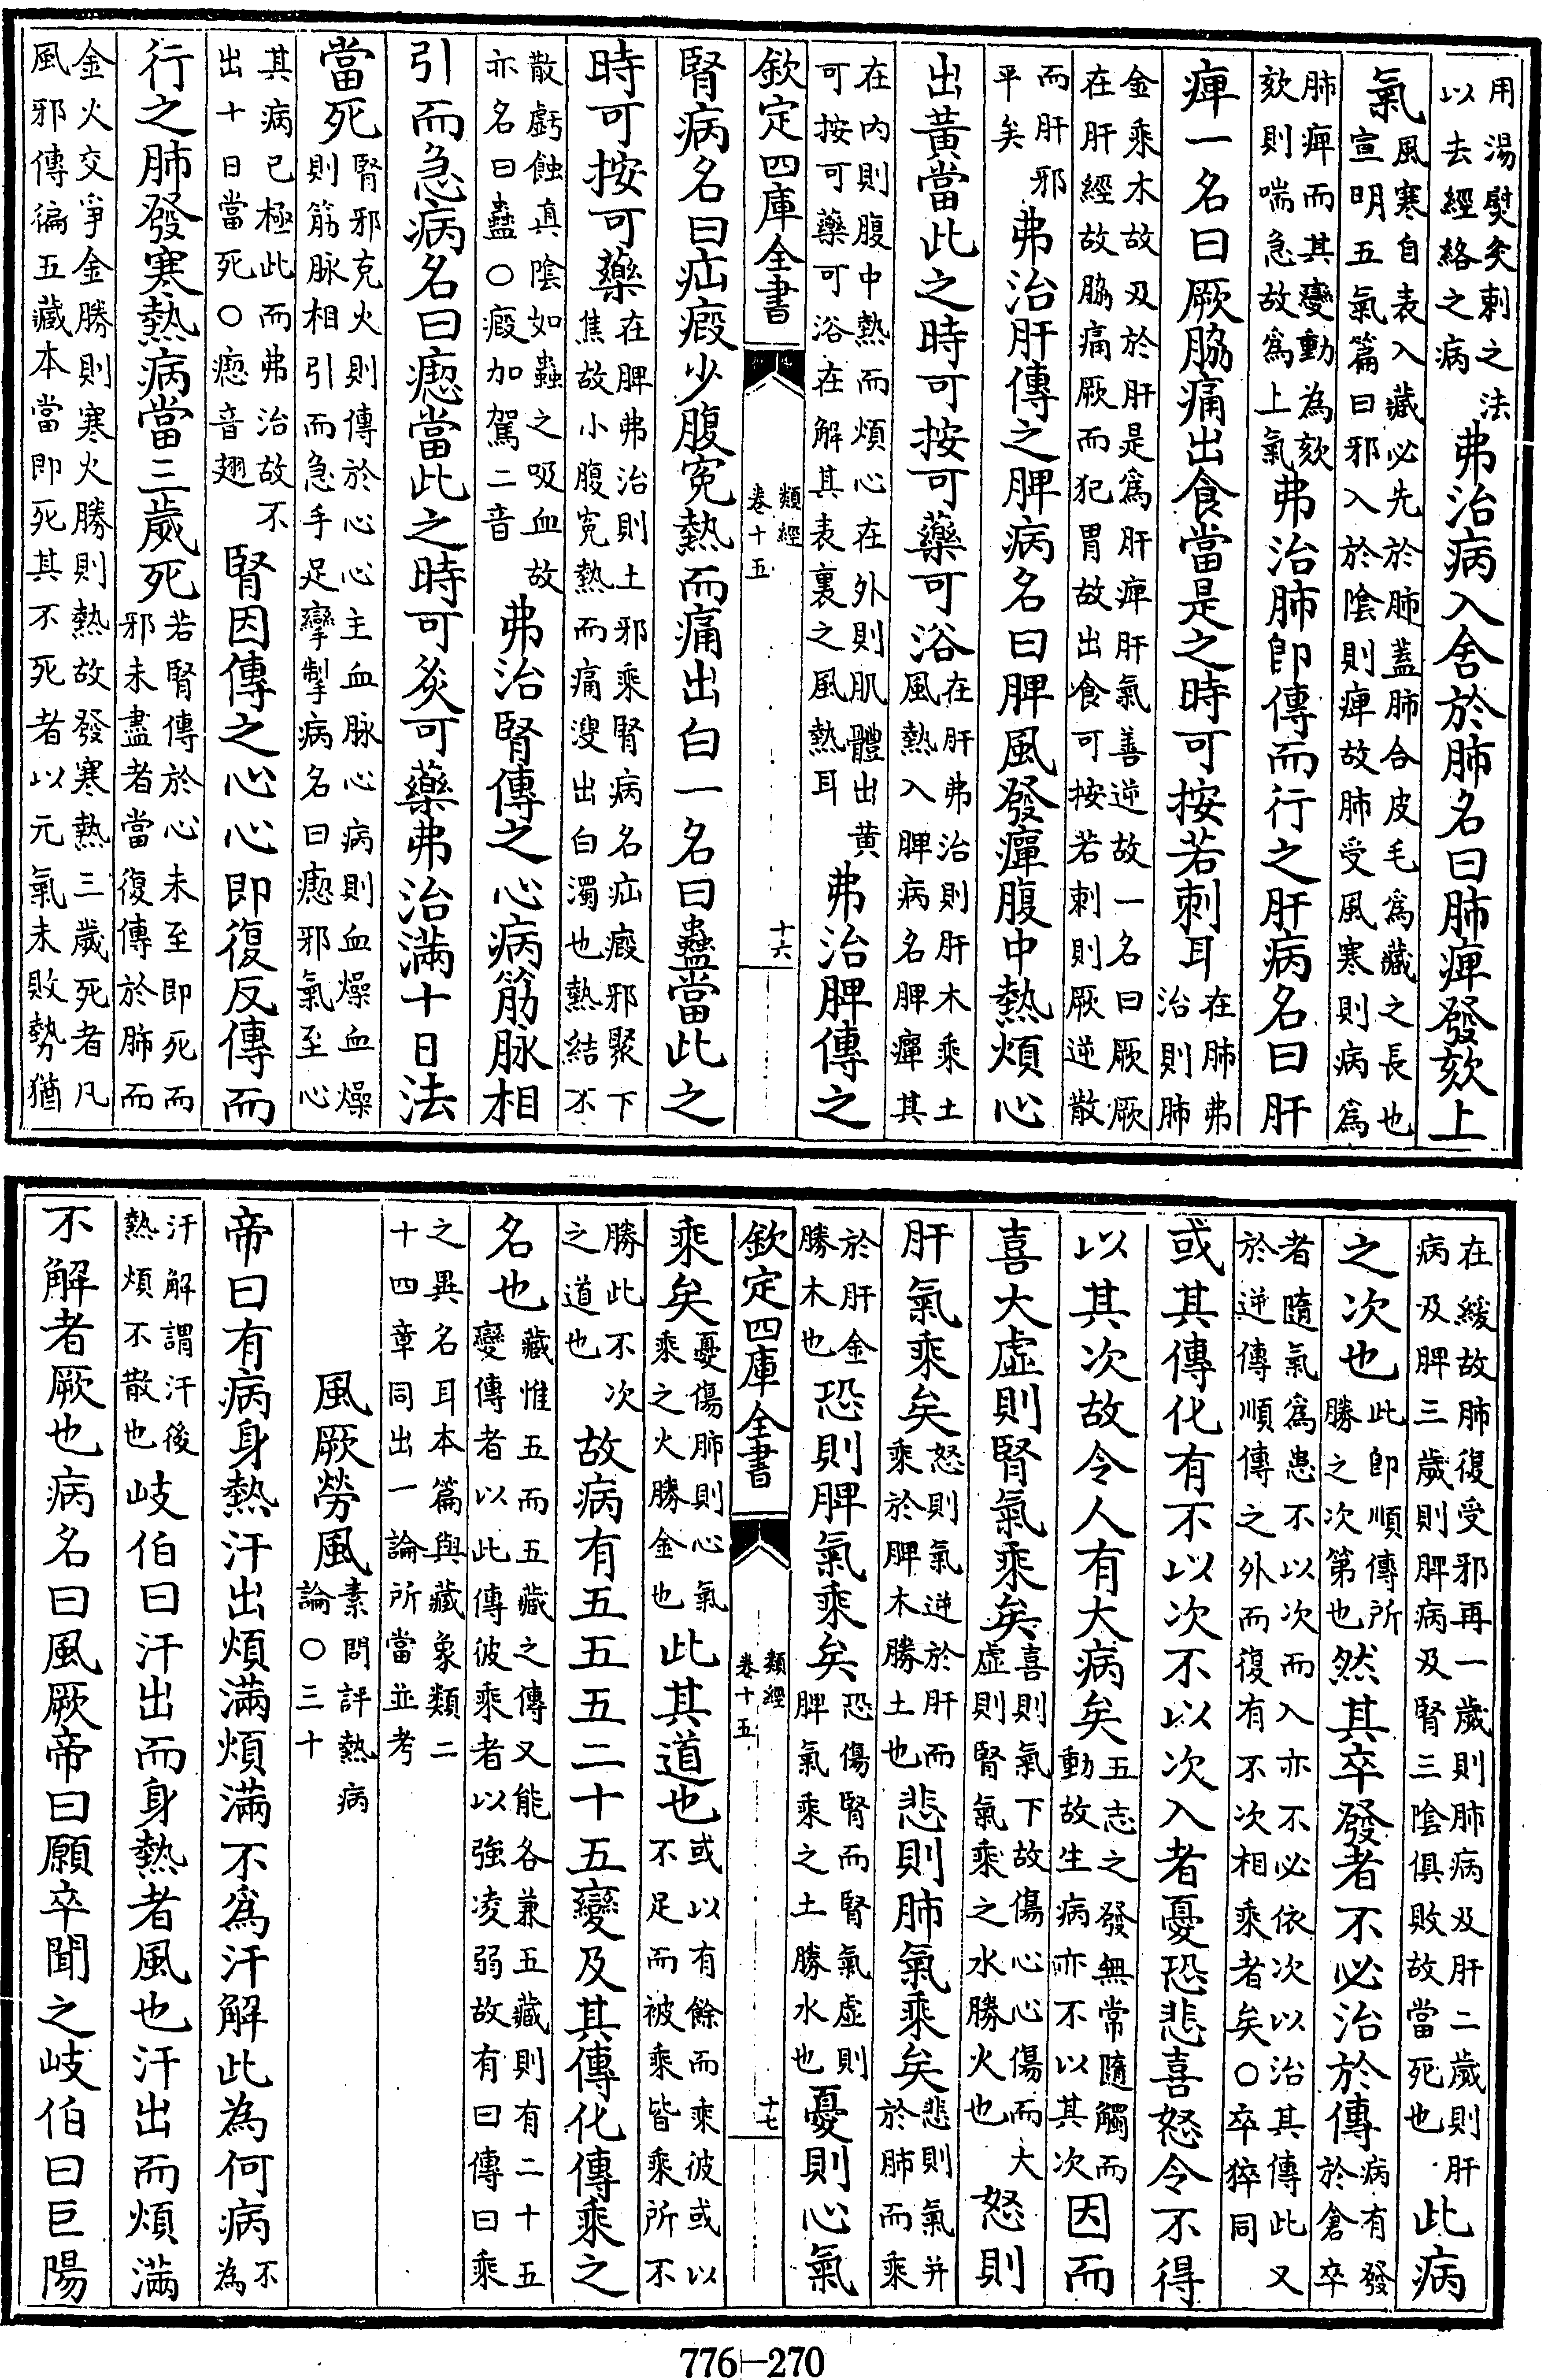 用湯熨灸刺之法以去經絡之病弗治病入舍於肺名曰肺痺發欬上
氣風寒自表入藏必先於肺蓋肺合皮毛爲藏之長也宣明五氣篇曰邪入於陰則痺故肺受風寒則病爲
肺痺而其變動為欬欬則喘急故爲上氣弗治肺即傳而行之肝病名曰肝
痺一名曰厥脇痛出食當是之時可按若刺耳在肺弗治則肺
金乘木故及於肝是爲肝痺肝氣善逆故一名曰厥厥在肝經故脇痛厥而犯胃故出食可按若刺則厥逆散
而肝邪平矣弗治肝傳之脾病名曰脾風發癉腹中熱煩心
出黃當此之時可按可藥可浴在肝弗治則肝木乘土風熱入脾病名脾癉其
在內則腹中熱而煩心在外則肌體出黄可按可藥可浴在解其表裏之風熱耳弗治脾傳之
欽定四庫全書 類經卷十五 十六
腎病名曰疝瘕少腹寃熱而痛出白一名曰蠱當此之
時可按可藥在脾弗治則土邪乘腎病名疝瘕邪聚下焦故小腹寃熱而痛溲出白濁也熱結不
散虧蝕真陰如蟲之吸血故亦名曰蠱○瘕加駕二音弗治腎傳之心病筋脉相
引而急病名曰瘛當此之時可灸可藥弗治滿十日法
當死腎邪克火則傳於心心主血脉心病則血燥血燥則筋脉相引而急手足攣掣病名曰瘛邪氣至心
其病已極此而弗治故不出十日當死○瘛音翅腎因傳之心心即復反傳而
行之肺發寒熱病當三歲死若腎傳於心未至即死而邪未盡者當復傳於肺而
金火交爭金勝則寒火勝則熱故發寒熱三歲死者凡風邪傳徧五藏本當即死其不死者以元氣未敗勢猶
在緩故肺復受邪再一歲則肺病及肝二歲則肝病及脾三歲則脾病及腎三陰俱敗故當死也此病
之次也此即順傳所勝之次第也然其卒發者不必治於傳病有發於倉卒
者隨氣爲患不以次而入亦不必依次以治其傳此又於逆傳順傳之外而復有不次相乘者矣○卒猝同
或其傳化有不以次不以次入者憂恐悲喜怒令不得
以其次故令人有大病矣五志之發無常隨觸而動故生病亦不以其次因而
喜大虛則腎氣乘矣喜則氣下故傷心心傷而大虛則腎氣乘之水勝火也怒則
肝氣乘矣怒則氣逆於肝而乘於脾木勝土也悲則肺氣乘矣悲則氣并於肺而乘
於肝金勝木也恐則脾氣乘矣恐傷腎而腎氣虛則脾氣乘之土勝水也憂則心氣
欽定四庫全書 類經卷十五 十七
乘矣憂傷肺則心氣乘之火勝金也此其道也或以有餘而乘彼或以不足而被乘皆乘所不
勝此不次之道也故病有五五五二十五變及其傳化傳乘之
名也藏惟五而五藏之傳又能各兼五藏則有二十五變傳者以此傳彼乘者以強凌弱故有曰傳曰乘
之異名耳本篇與藏象類二十四章同出一論所當並考
風厥勞風素問評熱病論○三十
帝曰有病身熱汗出煩滿煩滿不爲汗解此為何病不為
汗解謂汗後熱煩不散也岐伯曰汗出而身熱者風也汗出而煩滿
不解者厥也病名曰風厥帝曰願卒聞之岐伯曰巨陽
776-270